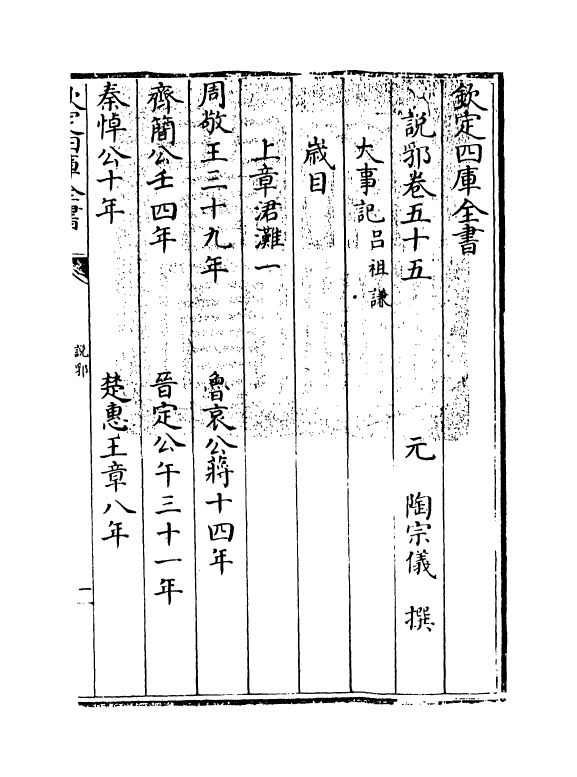 欽定四庫全書
説郛卷五十五　元　陶宗儀　撰
大事記 吕祖謙
歲目
上章涒灘一
周敬王三十九年　魯哀公蔣十四年
齊簡公壬四年　晉定公午三十一年
秦悼公十年　楚惠王章八年
欽定四庫全書
説郛
一